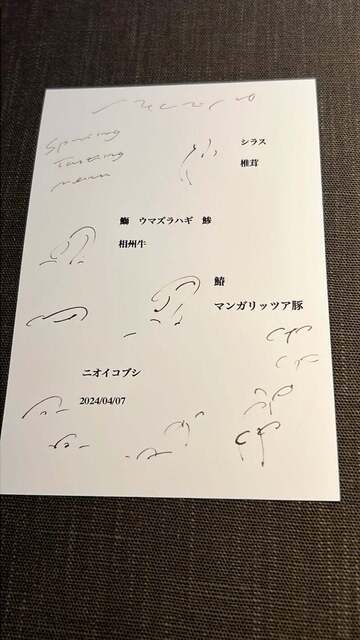 Spring
Tasting
menu
シラス
椎茸
鰤 ウマズラハギ 鯵
相州牛
鰆
マンガリッツア豚
ニオイコブシ
2024/04/07